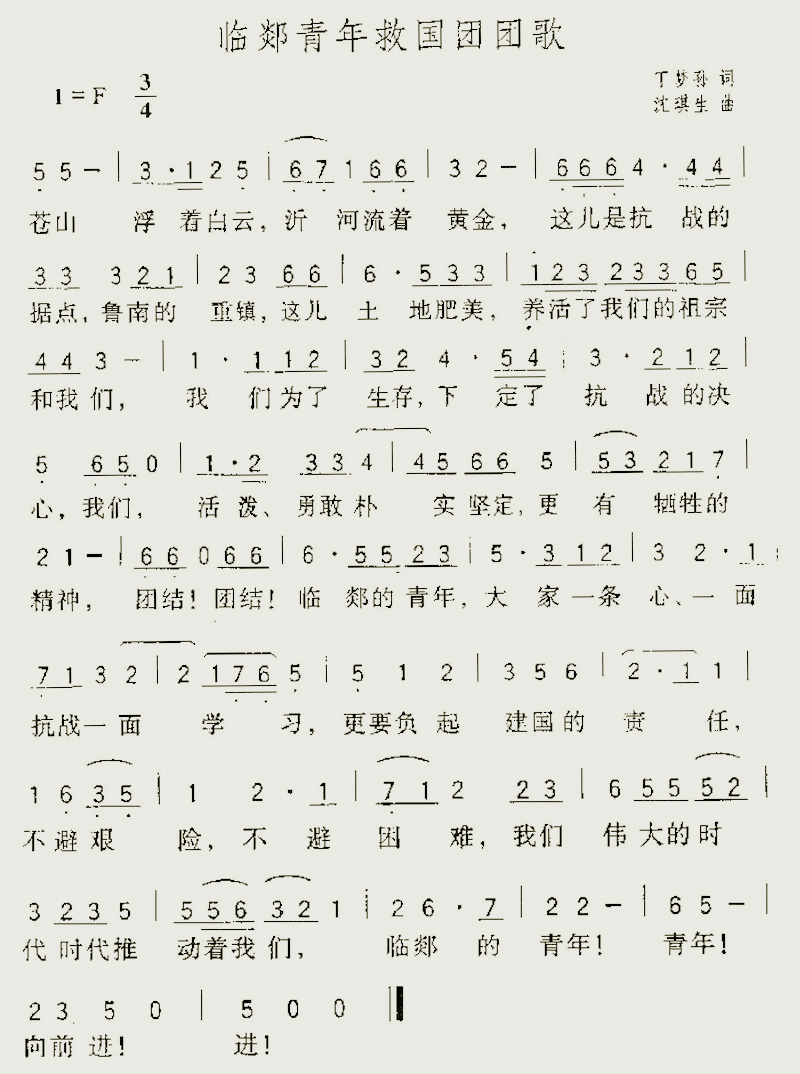 临郯青年救国团团歌
1=F 3/4
丁梦孙 词
沈琪生 曲
5 5 - | 3·1 2 5 | 6 7 1 6 6 | 3 2 - | 6 6 6 4·4 4 |
苍山 浮着白云，沂河流着 黄金，这儿是抗 战的
3 3 3 2 1 | 2 3 6 6 | 6·5 3 3 | 1 2 3 2 3 3 6 5 |
据点，鲁南的 重镇，这儿 土 地肥美，养活了我们的祖宗
4 4 3 - | 1·1 1 2 | 3 2 4·5 4 | 3·2 1 2 |
和我们，我 们为了 生存，下 定了 抗 战的决
5 6 5 0 | 1·2 3 3 4 | 4 5 6 6 5 | 5 3 2 1 7 |
心，我们，活泼、勇敢朴 实坚定，更有 牺牲的
2 1 - | 6 6 0 6 6 | 6·5 5 2 3 | 5·3 1 2 | 3 2·1 |
精神，团结！团结！临 郯的青年，大 家一条 心、一面
7 1 3 2 | 2 1 7 6 5 | 5 1 2 | 3 5 6 | 2·1 1 |
抗战一面 学 习，更要负起 建国的 责 任，
1 6 3 5 | 1 2·1 | 7 1 2 2 3 | 6 5 5 5 5 2 |
不避艰 险，不 避 困 难，我们 伟大的时
3 2 3 5 | 5 5 6 3 2 1 | 2 6·7 | 2 2 - | 6 5 - |
代时代推 动着我们，临郯 的 青年！青年！
2 3 5 0 | 5 0 0 ‖
向前进！进！